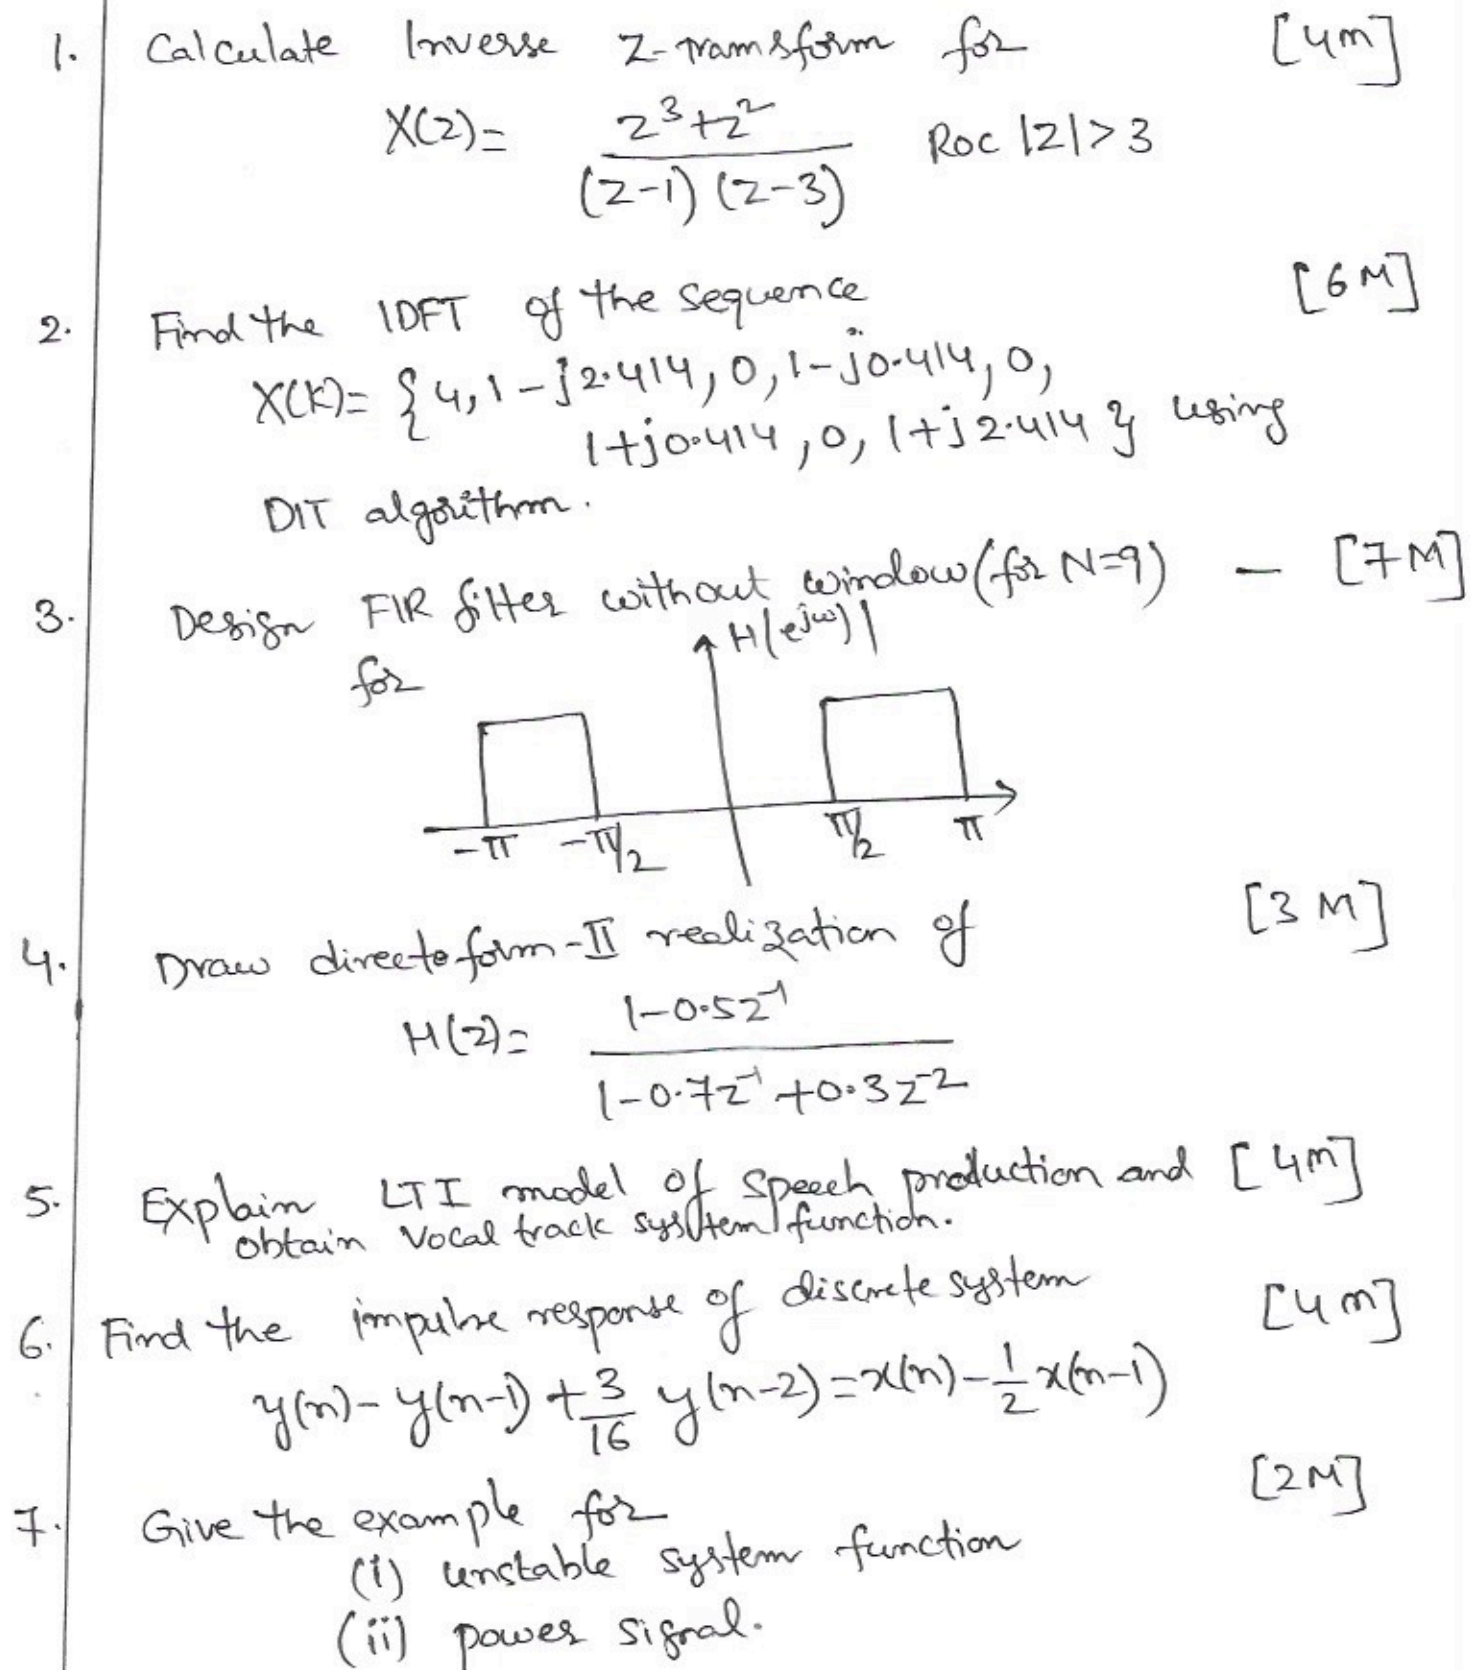 1. Calculate Inverse Z-transform for [4m]
X(z)= z³+z² / (z-1) (z-3) ROC |z|>3
2. Find the IDFT of the sequence [6M]
X(K)= {4, 1-j2.414, 0, 1-j0.414, 0,
1+j0.414, 0, 1+j2.414} using
DIT algorithm.
3. Design FIR filter without window (for N=9) - [7M]
for H(e^jω)|
-π -π/2 π/2 π
4. Draw directe form-II realization of [3M]
H(z)= 1-0.5z⁻¹ / 1-0.7z⁻¹+0.3z⁻²
5. Explain LTI model of speech production and [4m]
obtain Vocal track system function.
6. Find the impulse response of discrete system [4m]
y(n)-y(n-1)+3/16 y(n-2)=x(n)-1/2 x(n-1)
7. Give the example for [2M]
(i) unstable system function
(ii) power signal.